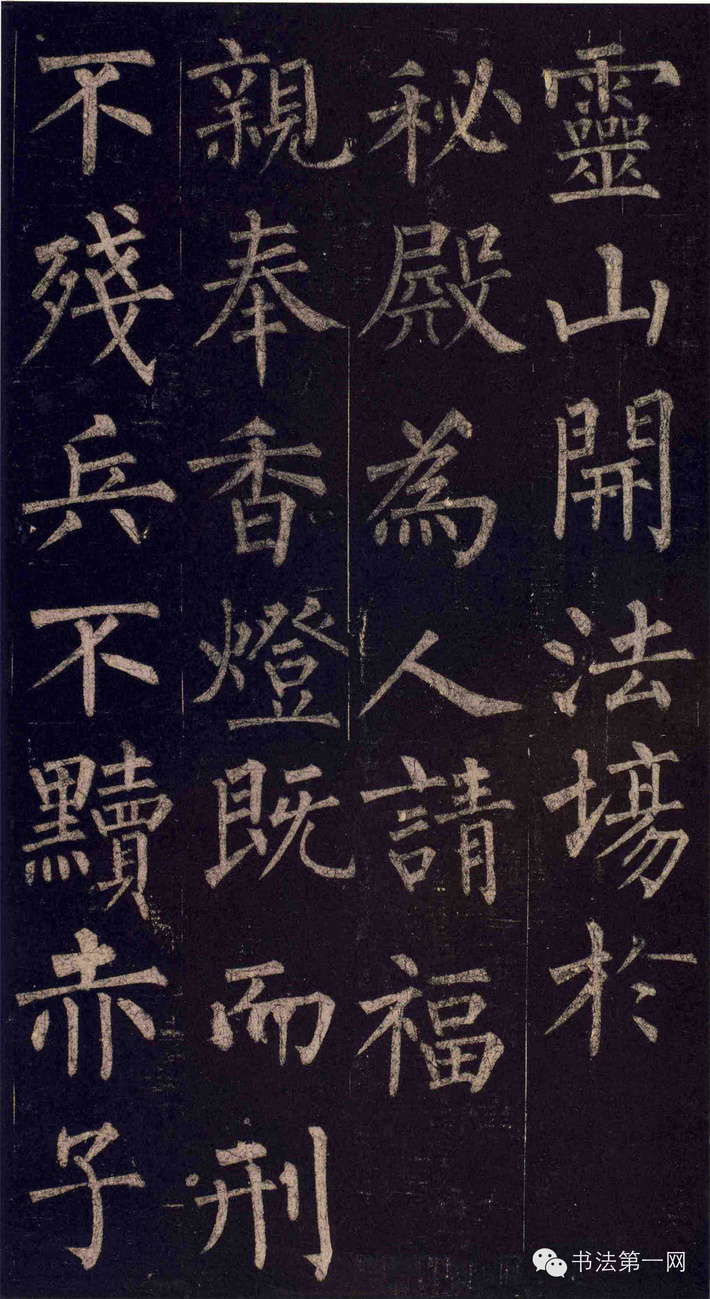 靈山開法場於
秘殿為人請福
親奉香燈既而刑
不殘兵不黷赤子
书法第一网